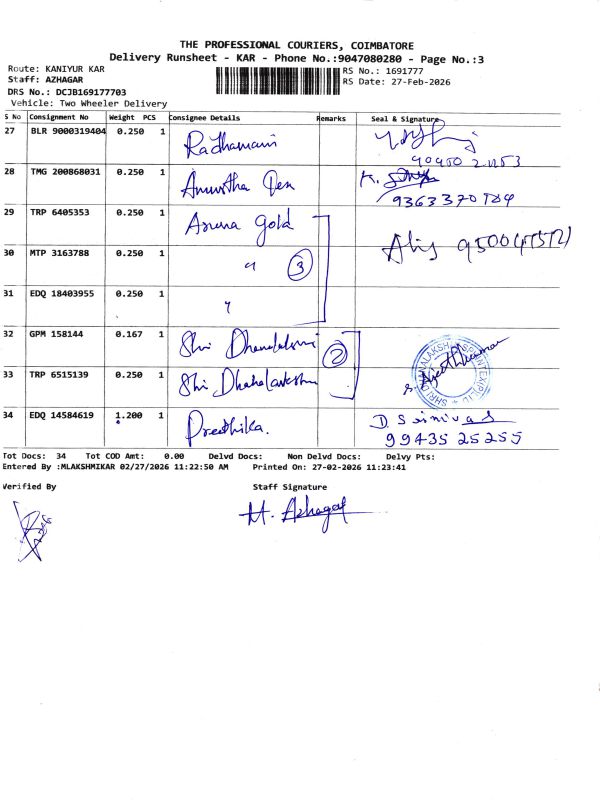 THE PROFESSIONAL COURIERS, COIMBATORE
Delivery Runsheet - KAR - Phone No.:9047080280 - Page No.:3
Route: KANIYUR KAR
RS No.: 1691777
Staff: AZHAGAR
RS Date: 27-Feb-2026
DRS No.: DCJB169177703
Vehicle: Two Wheeler Delivery
S No Consignment No Weight PCS Consignee Details Remarks Seal & Signature
27 BLR 9000319404 0.250 1 Radhamani
28 TMG 200868031 0.250 1
9363370784
29 TRP 6405353 0.250 1 Aruna Gold
30 MTP 3163788 0.250 1 " 3
31 EDQ 18403955 0.250 1 "
32 GPM 158144 0.167 1 Shri 2
33 TRP 6515139 0.250 1 Shri
34 EDQ 14584619 1.200 1 Preethika. D. Srinivas
99435 25255
Tot Docs: 34 Tot COD Amt: 0.00 Delvd Docs: Non Delvd Docs: Delvy Pts:
Entered By :MLAKSHMIKAR 02/27/2026 11:22:50 AM Printed On: 27-02-2026 11:23:41
Verified By Staff Signature
M. Azhagar